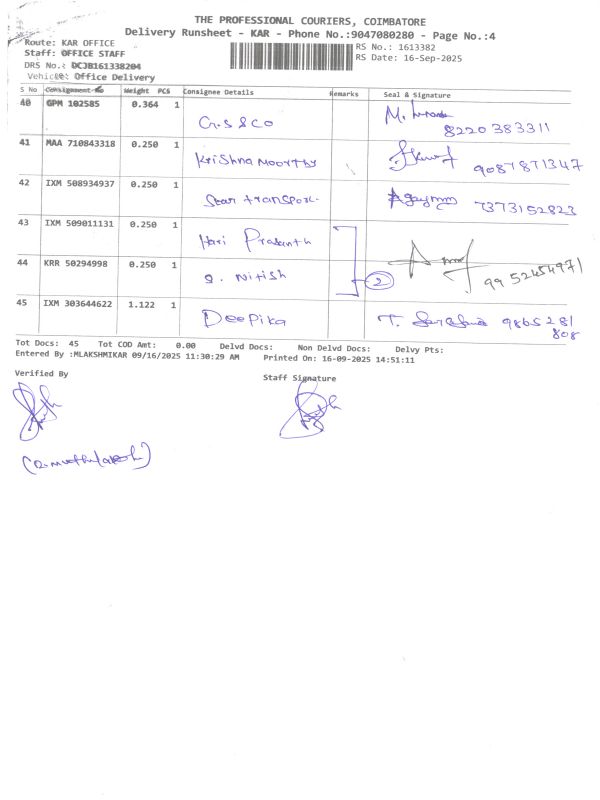 THE PROFESSIONAL COURIERS, COIMBATORE
Delivery Runsheet - KAR - Phone No.:9047080280 - Page No.:4
Route: KAR OFFICE
RS No.: 1613382
Staff: OFFICE STAFF
RS Date: 16-Sep-2025
DRS No.: DCJB161338204
Vehicle: Office Delivery
S No Consignment No Weight PCS Consignee Details Remarks Seal & Signature
40 GPM 102585 0.364 1 G.S & CO M. 8220383311
41 MAA 710843318 0.250 1 Krishna Moorthy 9087871347
42 IXM 508934937 0.250 1 Star transport. 7373152823
43 IXM 509011131 0.250 1 Hari Prasanth
44 KRR 50294998 0.250 1 S. Nitish 2 9952454971
45 IXM 303644622 1.122 1 Deepika T. 9865281
808
Tot Docs: 45 Tot COD Amt: 0.00 Delvd Docs: Non Delvd Docs: Delvy Pts:
Entered By :MLAKSHMIKAR 09/16/2025 11:30:29 AM Printed On: 16-09-2025 14:51:11
Verified By
Staff Signature